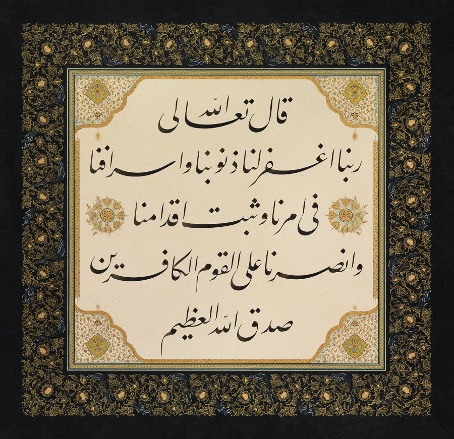 قال الله تعالى
ربنا اغفر لنا ذنوبنا واسرافنا
فى امرنا وثبت اقدامنا
وانصرنا على القوم الكافرين
صدق الله العظيم